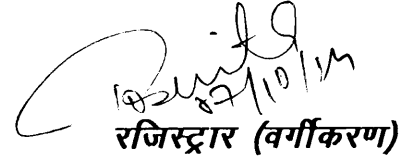 27/10/14
रजिस्ट्रार (वर्गीकरण)